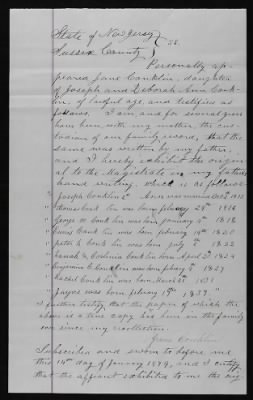 State of New Jersey
Sussex County } SS.
Personally ap-
peared Jane Conklin, daughter
of Joseph and Deborah Ann Conk-
lin, of lawful age, and testifies as
follows. I am, and for several years
have been, with my mother, the cus-
todian of our family record, that the
same was written by my father,
and I hereby exhibit the origin-
al to the Magistrate in my father's
hand writing, which is as follows
Joseph Conklin
Conklin was born february 1816
" George W. Conklin was born january 1818
" Conklin was born february 1820
" Conklin was born july 1822
" Sarah Conklin was born April 1824
" Benjamin C. Conklin was born febuary 1827
" Rachel Conklin was born March 1831
" Jayne was born febuary 1837 "
I further testify that the paper of which the
above is a true copy has been in the family
ever since my recollection.
Jane Conklin
Subscribed and sworn to before me
this 14th day of January 1879, and I certify
that the affiant exhibited to me the orig-